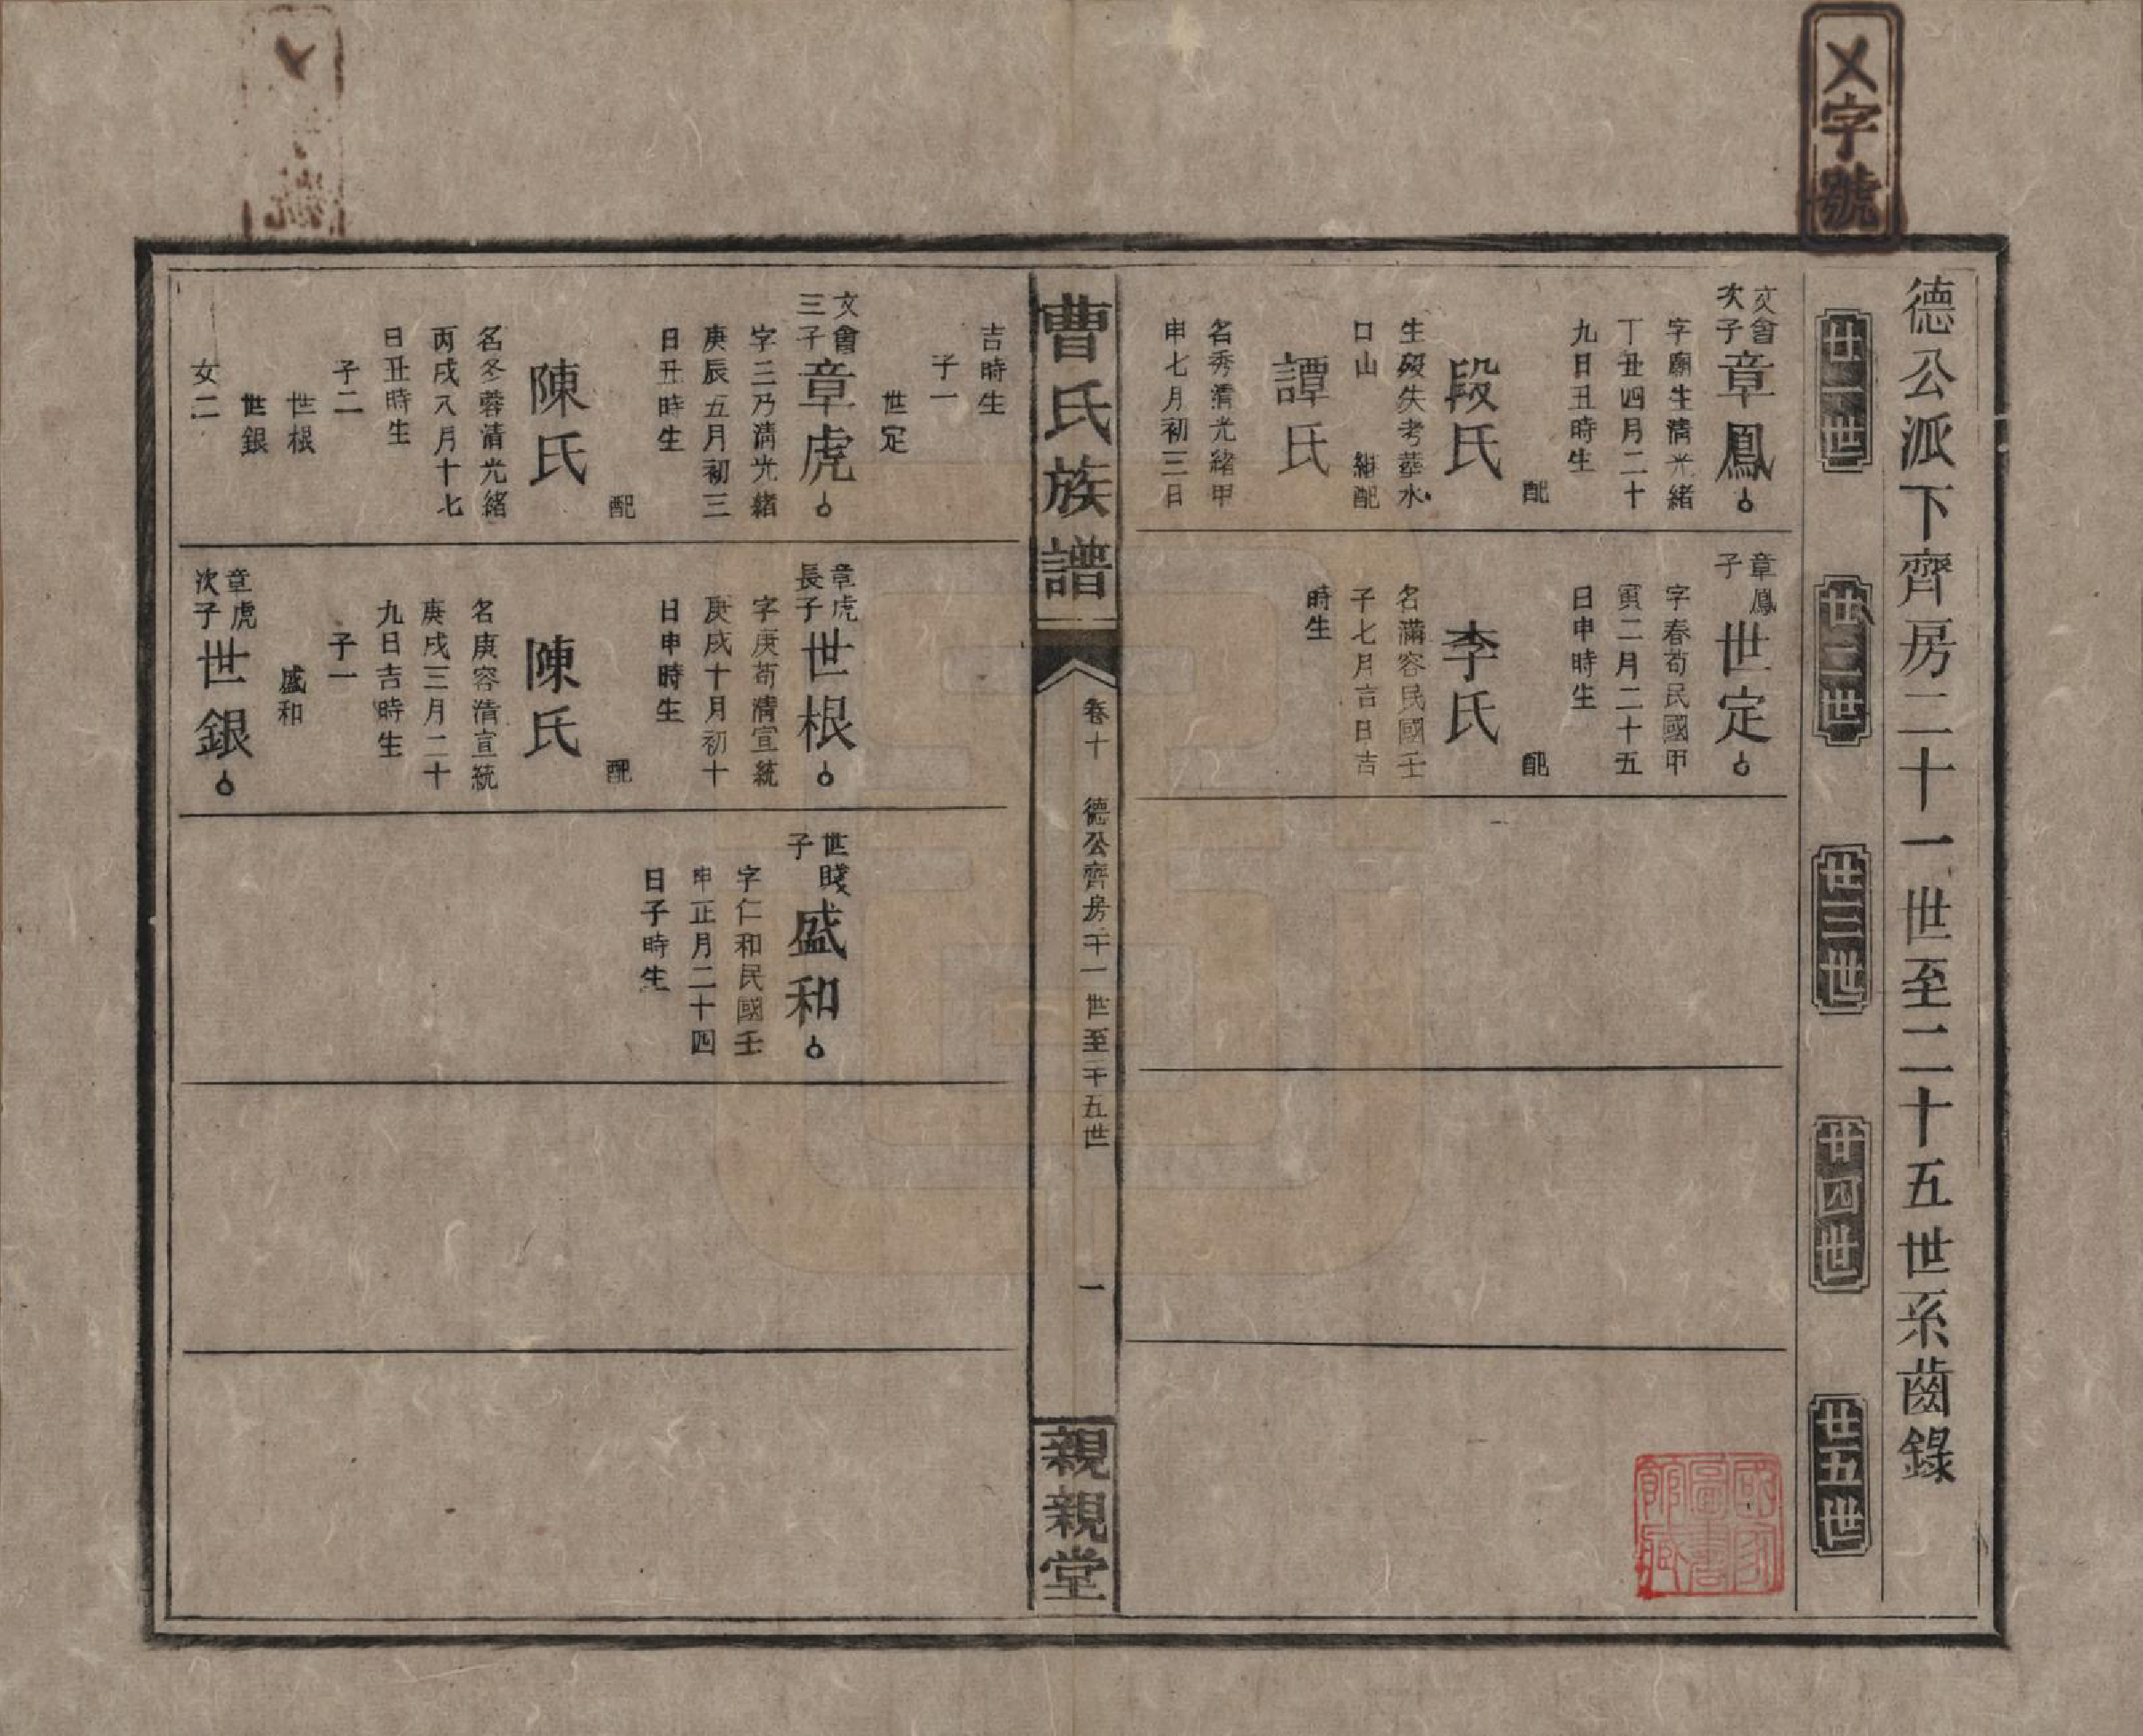 乂字號
德公派下齊房二十一世至二十五世系齒錄
廿一世
廿二世
廿三世
廿四世
廿五世
文會
次子
章鳳
字廟生清光緒
丁丑四月二十
九日丑時生
配
段氏
生歿失考葬水
口山 繼配
譚氏
名秀清光緒甲
申七月初三日
吉時生
子一
世定
文會
三子
章虎
字三乃清光緒
庚辰五月初三
日丑時生
配
陳氏
名冬蓉清光緒
丙戌八月十七
日丑時生
子二
世根
世銀
女二
章鳳
子
世定
字春苟民國甲
寅二月二十五
日申時生
配
李氏
名滿容民國壬
子七月吉日吉
時生
章虎
長子
世根
字庚苟清宣統
庚戌十月初十
日申時生
配
陳氏
名庚容清宣統
庚戌三月二十
九日吉時生
子一
盛和
章虎
次子
世銀
世
子
盛和
字仁和民國壬
申正月二十四
日子時生
曹氏族譜
卷十
德公齊房二十一世至二十五世
一
親親堂
國家
圖書
館藏